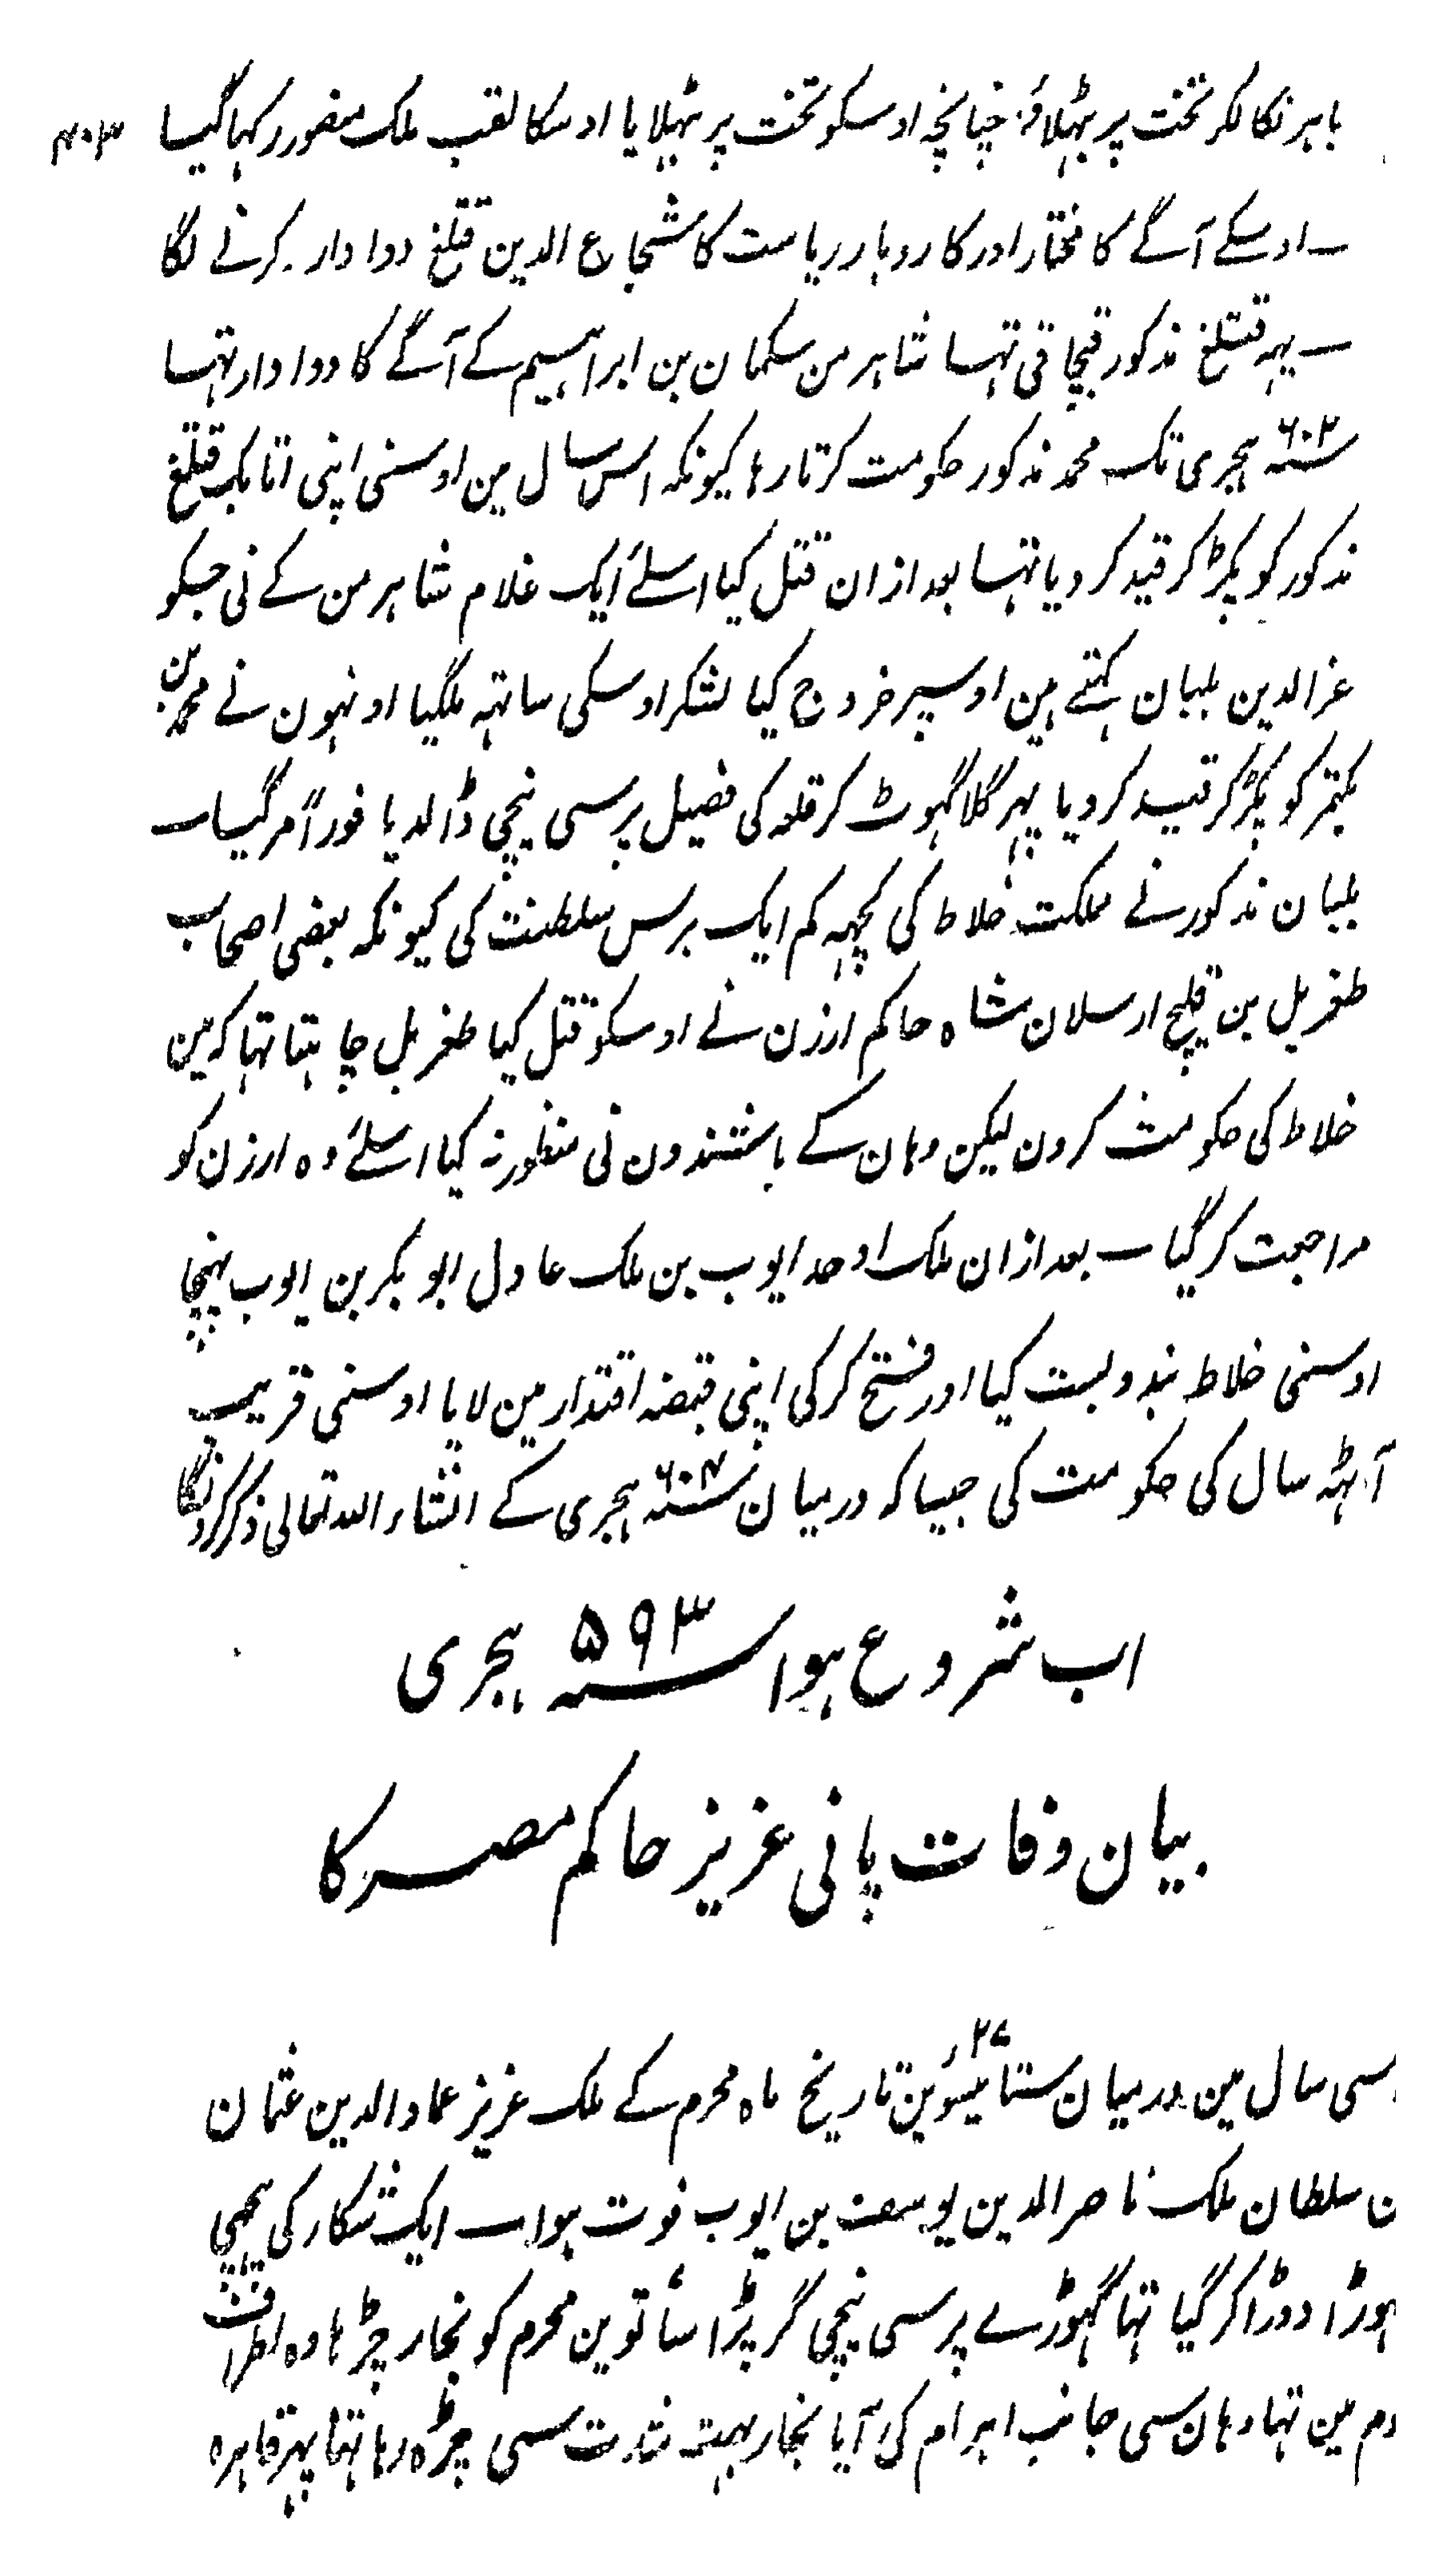 باہر نکالکر تخت پر بہٹلاؤ چنانچہ اوسکو تخت پر بٹہلایا اوسکا لقب ملک منصور رکہا گیا
ـ اوسکے آگے کا مختار اور کاروبار ریاست کا شجاع الدین قتلغ دوادار کرنے لگا
ـ یہہ قتلغ مذکور قپچاقی تہا شاہرمن سکمان بن ابراہیم کے آگے کا دوادار تہا
سنہ ۶۰۲ ہجری تک محمد مذکور حکومت کرتا رہا کیونکہ اس سال مین اوسنی اپنی اتابک قتلغ
مذکور کو پکڑ کر قید کر دیا تہا بعد ازان قتل کیا اسلئے ایک غلام شاہرمن کے نی جسکو
عزالدین بلبان کہتے ہین اوسپر خروج کیا لشکر اوسکی ساتہہ ملگیا اونہون نے محمد بن
بکتمر کو پکڑ کر قید کر دیا پہر گلا گہوٹ کر قلعہ کی فصیل پر سی نیچی ڈالدیا فوراً مر گیا ـ
بلبان مذکور نے مملکت خلاط کی کچہہ کم ایک برس سلطنت کی کیونکہ بعضی اصحاب
طغریل بن قلیج ارسلان شاہ حاکم ارزن نے اوسکو قتل کیا طغریل چاہتا تہا کہ مین
خلاط کی حکومت کرون لیکن وہان کے باشندون نی منظور نہ کیا اسلئے وہ ارزن کو
مراجعت کر گیا ـ بعد ازان ملک اوحد ایوب بن ملک عادل ابو بکر بن ایوب پہنچا
اوسنی خلاط بندوبست کیا اور فتح کر کی اپنی قبضہ اقتدار مین لایا اوسنی قریب
آٹہہ سال کی حکومت کی جیسا کہ درمیان سنہ ۶۰۴ ہجری کے انشاء اللہ تعالی ذکر کرونگا
اب شروع ہوا سنہ ۵۹۳ ہجری
بیان وفات پانی عزیز حاکم مصر کا
سی سال مین درمیان ستائیسوئین ۲۷ تاریخ ماہ محرم کے ملک عزیز عماد الدین عثمان
ن سلطان ملک ناصر الدین یوسف بن ایوب فوت ہوا ـ ایک شکار کی پیچہی
ہوڑا دوڑا کر گیا تہا گہوڑے پر سی نیچی گر پڑا ساتوین محرم کو بخار چڑہا وہ اطراف
مین تہا وہان سی جانب اہرام کی آیا بخار بہت شدت سی چڑہ رہا تہا پہر قاہرہ